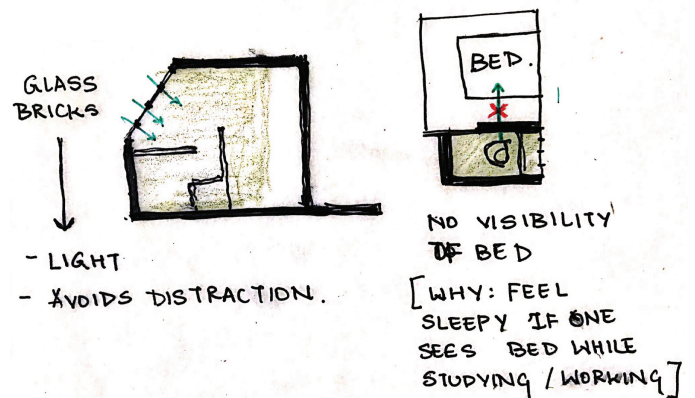 GLASS
BRICKS
- LIGHT
- AVOIDS DISTRACTION.
BED.
NO VISIBILITY
OF BED
[WHY: FEEL
SLEEPY IF ONE
SEES BED WHILE
STUDYING / WORKING]